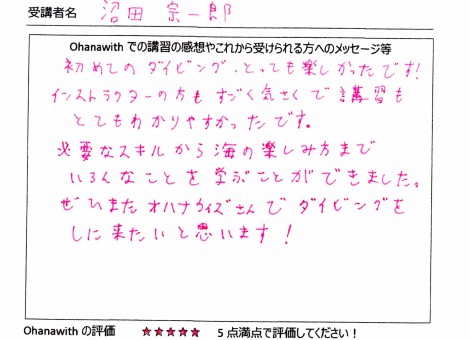 受講者名 沼田 宗一郎
Ohanawith での講習の感想やこれから受けられる方へのメッセージ等
初めてのダイビング、とっても楽しかったです!
インストラクターの方もすごく気さくで講習も
とてもわかりやすかったです。
必要なスキルから海の楽しみ方まで
いろんなことを学ぶことができました。
ぜひまたオハナウィズさんでダイビングを
しに来たいと思います!
Ohanawith の評価 ★★★★★ 5 点満点で評価してください!